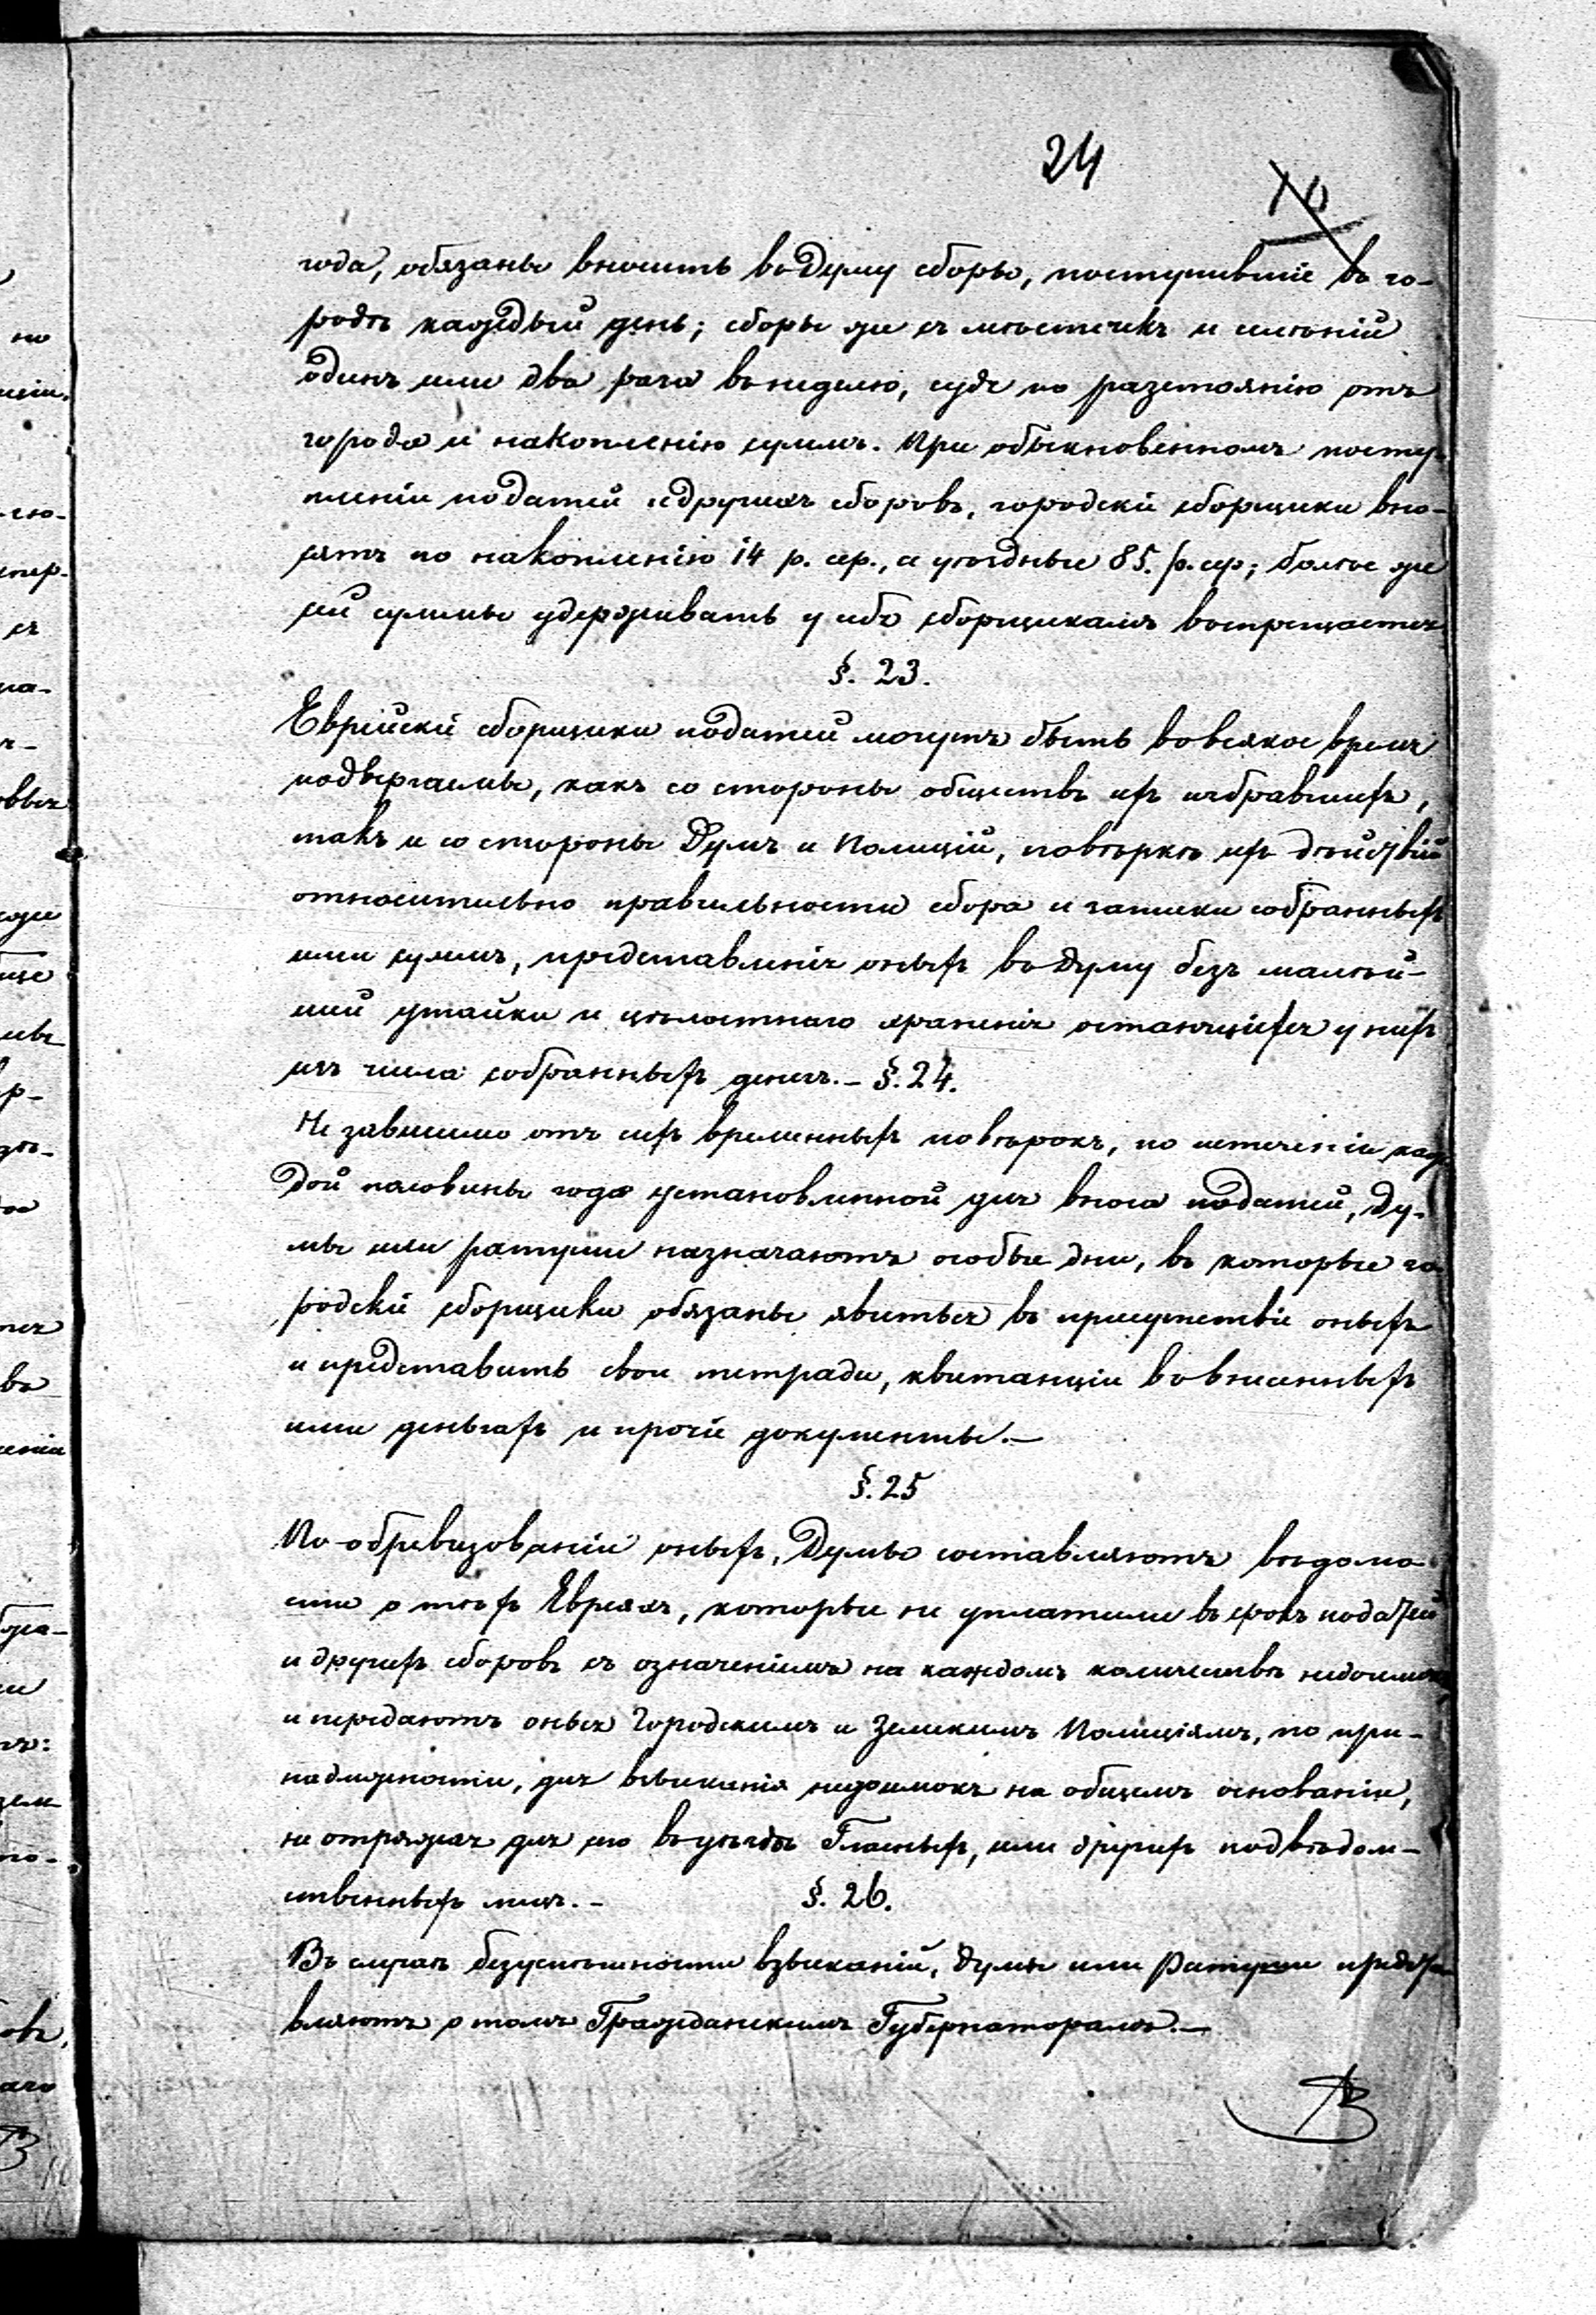 24
10
года, обязаны вносить въ Думу сборы, поступившіе въ го-
родѣ каждый день; сборы же съ мѣстечкъ и имѣній
одинъ или два раза въ неделю, судя по разстоянію отъ
города и накопленію суммъ. При обыкновенномъ посту
пленіи податей и другихъ сборовъ, городскіе сборщики вно-
сятъ по накопленію 14 р. сер., а уѣздные 85. р. сер; болѣе же
сей суммы удерживать у себя сборщикамъ воспрещается
§. 23.
Еврейскіе сборщики податей могутъ быть во всякое время
подвергаемы, какъ со стороны обществъ ихъ избравшихъ,
такъ и со стороны Думъ и Полицій, повѣркѣ ихъ дѣйствій
относительно правильности сбора и записки собранныхъ
ими суммъ, представленія оныхъ въ Думу безъ малѣй-
шей утайки и цѣлостнаго храненія остающихся у нихъ
изъ числа собранныхъ денегъ. – §. 24.
Не зависимо отъ сихъ временныхъ повѣрокъ, по истеченіи каж
дой половины года установленной для вноса податей, Ду-
мы или ратуши назначаютъ особые дни, въ которые го
родскіе сборщики обязаны явиться въ присутствіе оныхъ
и представить свои тетради, квитанціи во внесенныхъ
ими деньгахъ и прочіе документы. —
§. 25
По обревизованіи оныхъ, Думы составляютъ вѣдомо
сти о тѣхъ Евреяхъ, которые не уплатили въ срокъ податей
и другихъ сборовъ съ означеніемъ на каждомъ количества недоимки
и передаютъ оныя Городскимъ и Земскимъ Полиціямъ, по при-
надлежности, для взысканія недоимокъ на общемъ основаніи,
не отряжая для его въ уѣзды Гласныхъ, или другихъ подвѣдом-
ственныхъ лицъ. – §. 26.
Въ случаѣ безуспѣшности взысканій, думы или Ратуши предста
вляютъ о томъ Гражданскимъ Губернаторамъ. —